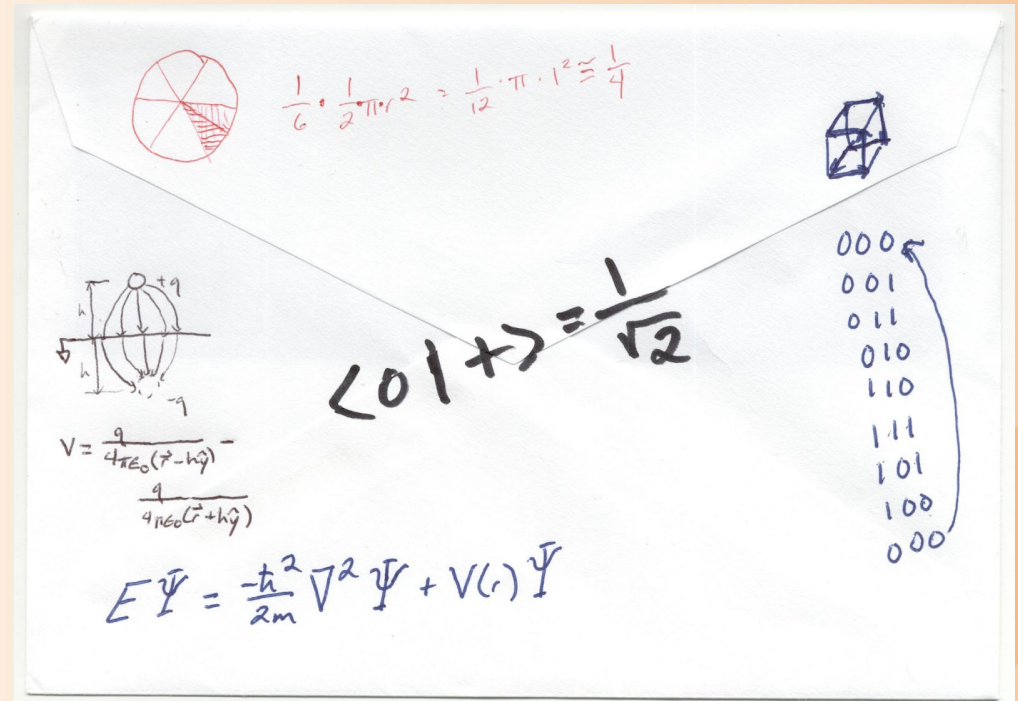 1/6 · 1/2 · π · r² = 1/12 · π · 1² ≅ 1/4
+q
h
h
-q
V = q/4πε₀(r⃗-hŷ) -
q/4πε₀(r⃗+hŷ)
<0|+> = 1/√2
000
001
011
010
110
111
101
100
000
EΨ = -ħ²/2m ∇²Ψ + V(r)Ψ